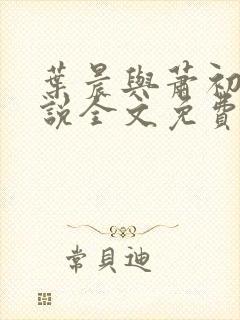 葉晨與蕭初
說全文免費
常貝迪